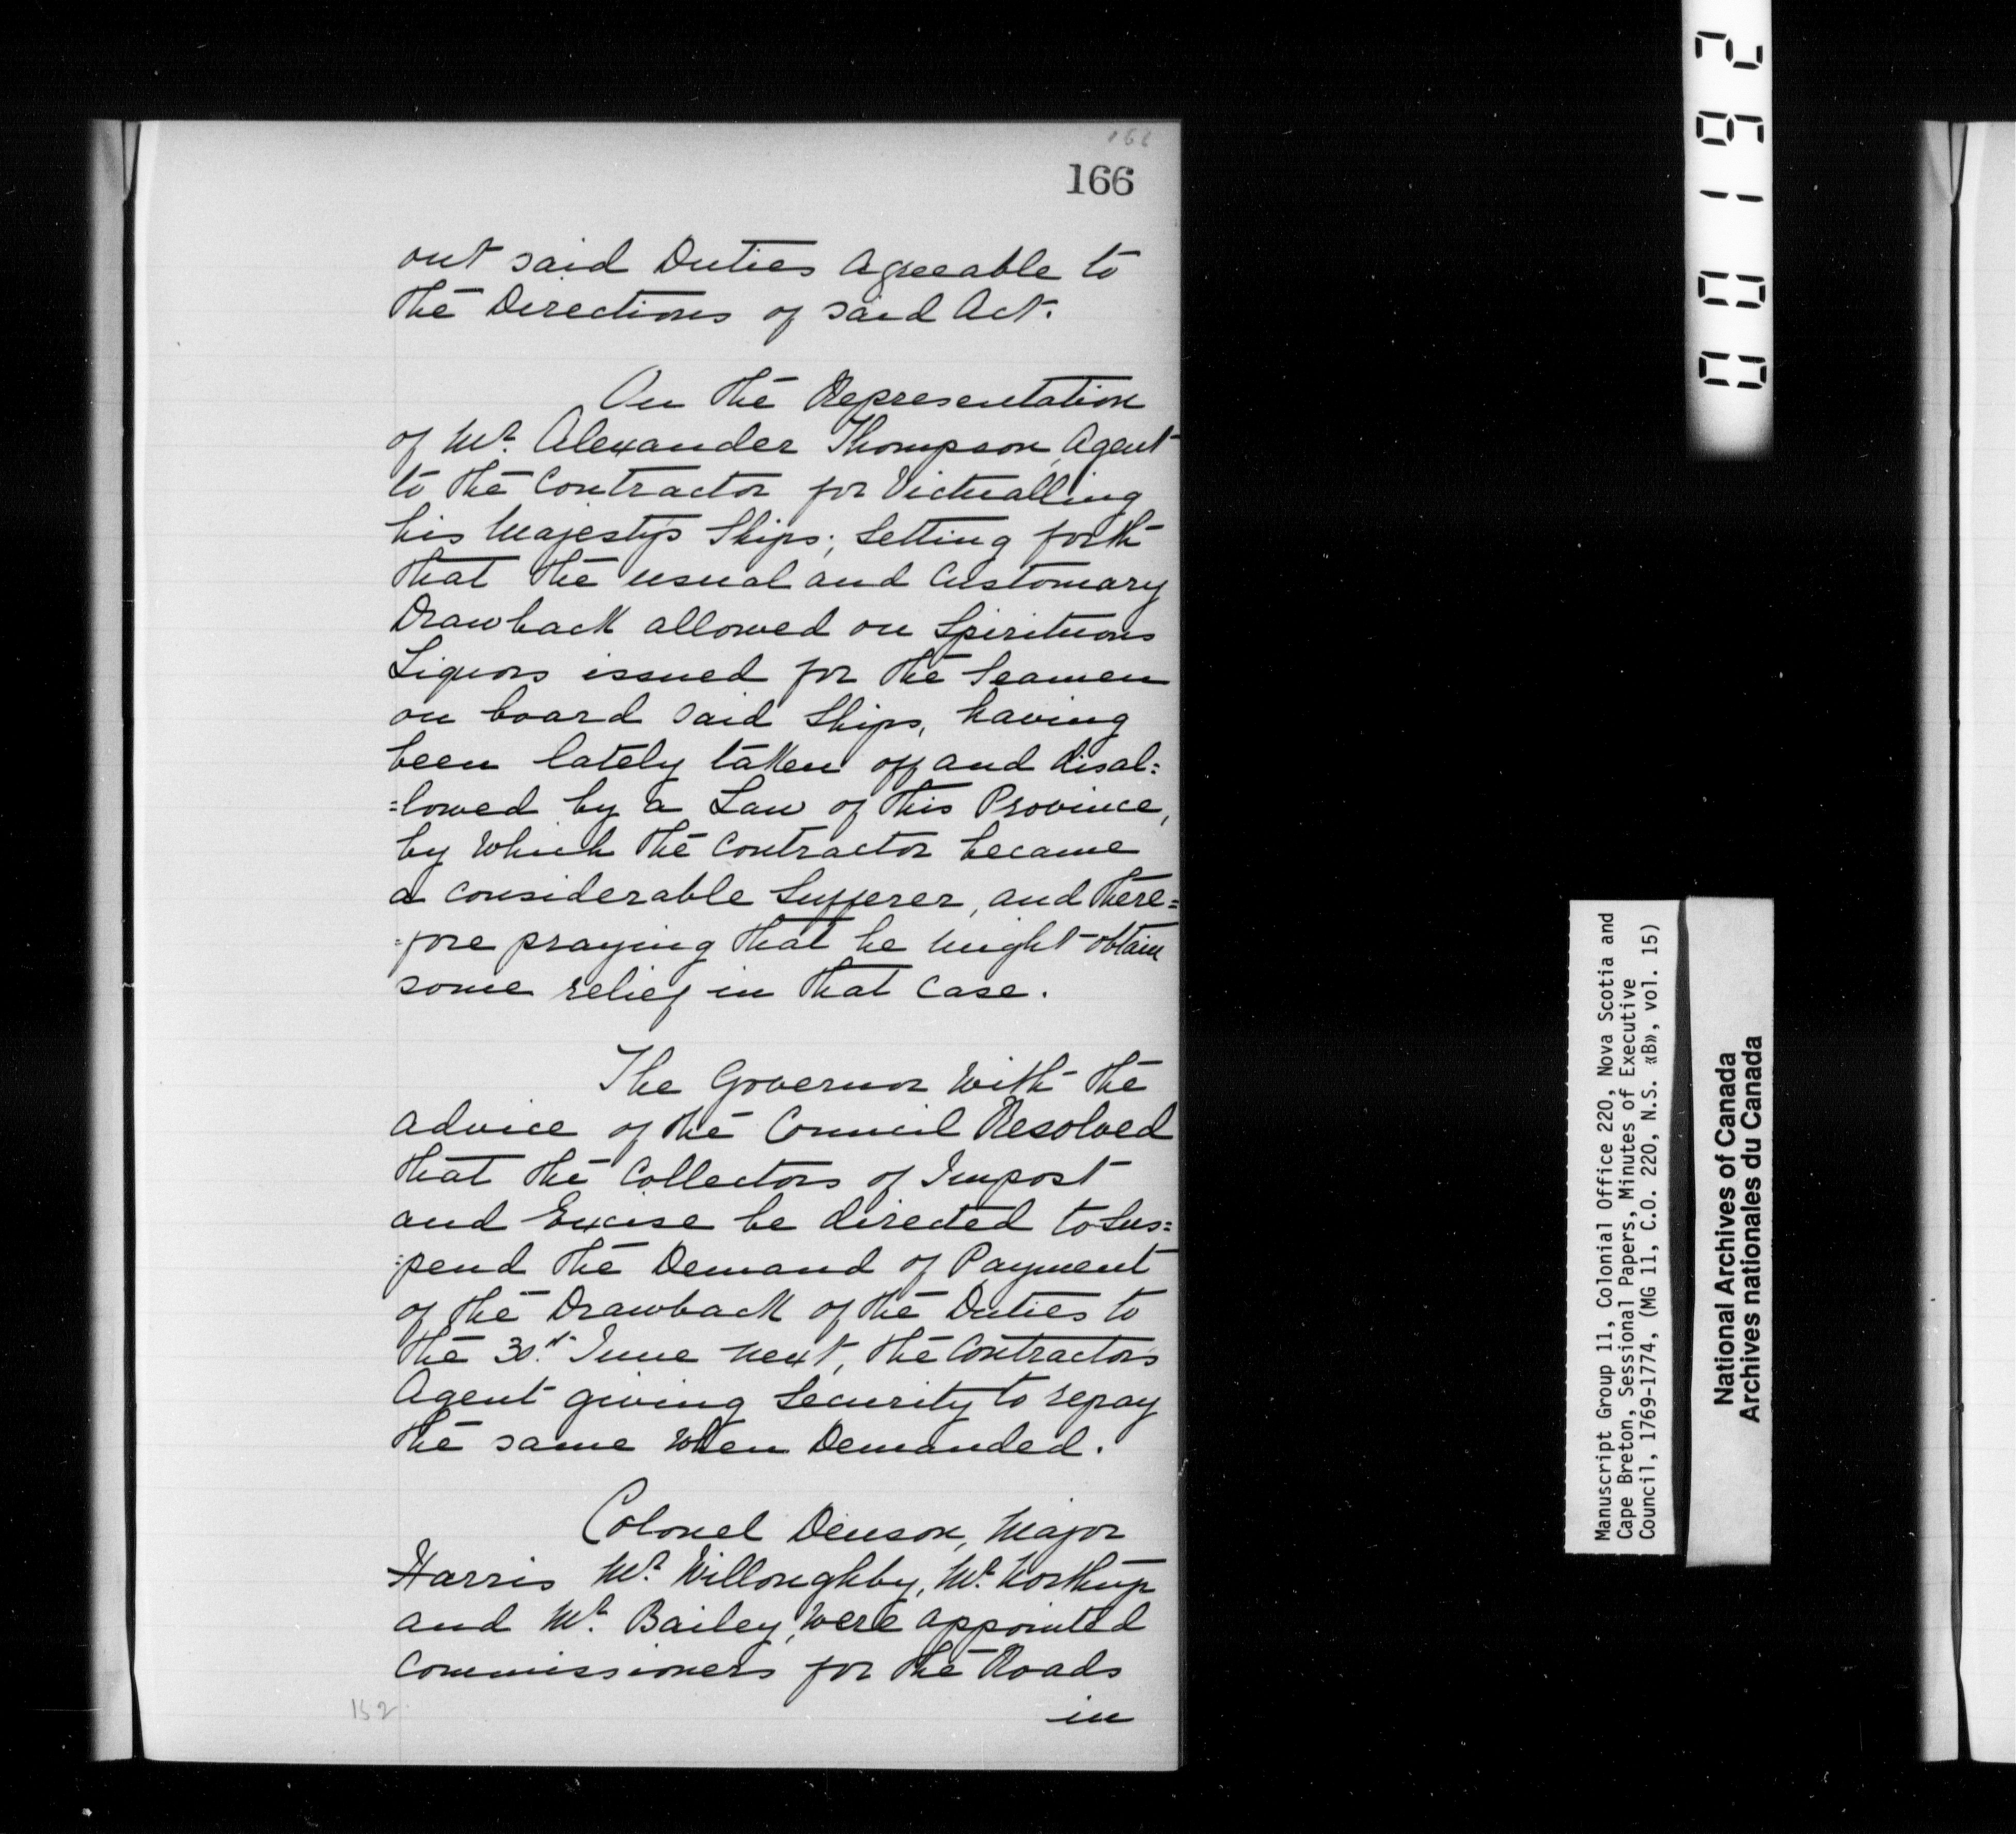 166
166
out said Duties agreeable to
the Directions of said Act.
On the Representation
of Mr. Alexander Thompson, Agent
to the Contractor for Victualling
his Majesty's Ships; Setting forth
that the usual and Customary
Drawback allowed on Spirituous
Liquors issued for the Seamen
on board said Ships, having
been lately taken off and disal=
=lowed by a Law of this Province,
by which the Contractor became
a considerable Sufferer, and there=
=fore praying that he might obtain
some relief in that Case.
The Governor with the
advice of the Council Resolved
that the Collectors of Impost
and Excise be directed to Sus=
=pend the Demand of Payment
of the Drawback of the Duties to
the 30. June next, the Contractors
Agent giving Security to repay
the same when Demanded.
Colonel Denson, Major
Harris Mr. Willoughby, Mr. Northup
and Mr. Bailey, were appointed
Commissioners for the Roads
in
152
00192
Manuscript Group 11, Colonial Office 220, Nova Scotia and
Cape Breton, Sessional Papers, Minutes of Executive
Council, 1769-1774, (MG 11, C.O. 220, N.S. «B», vol. 15)
National Archives of Canada
Archives nationales du Canada